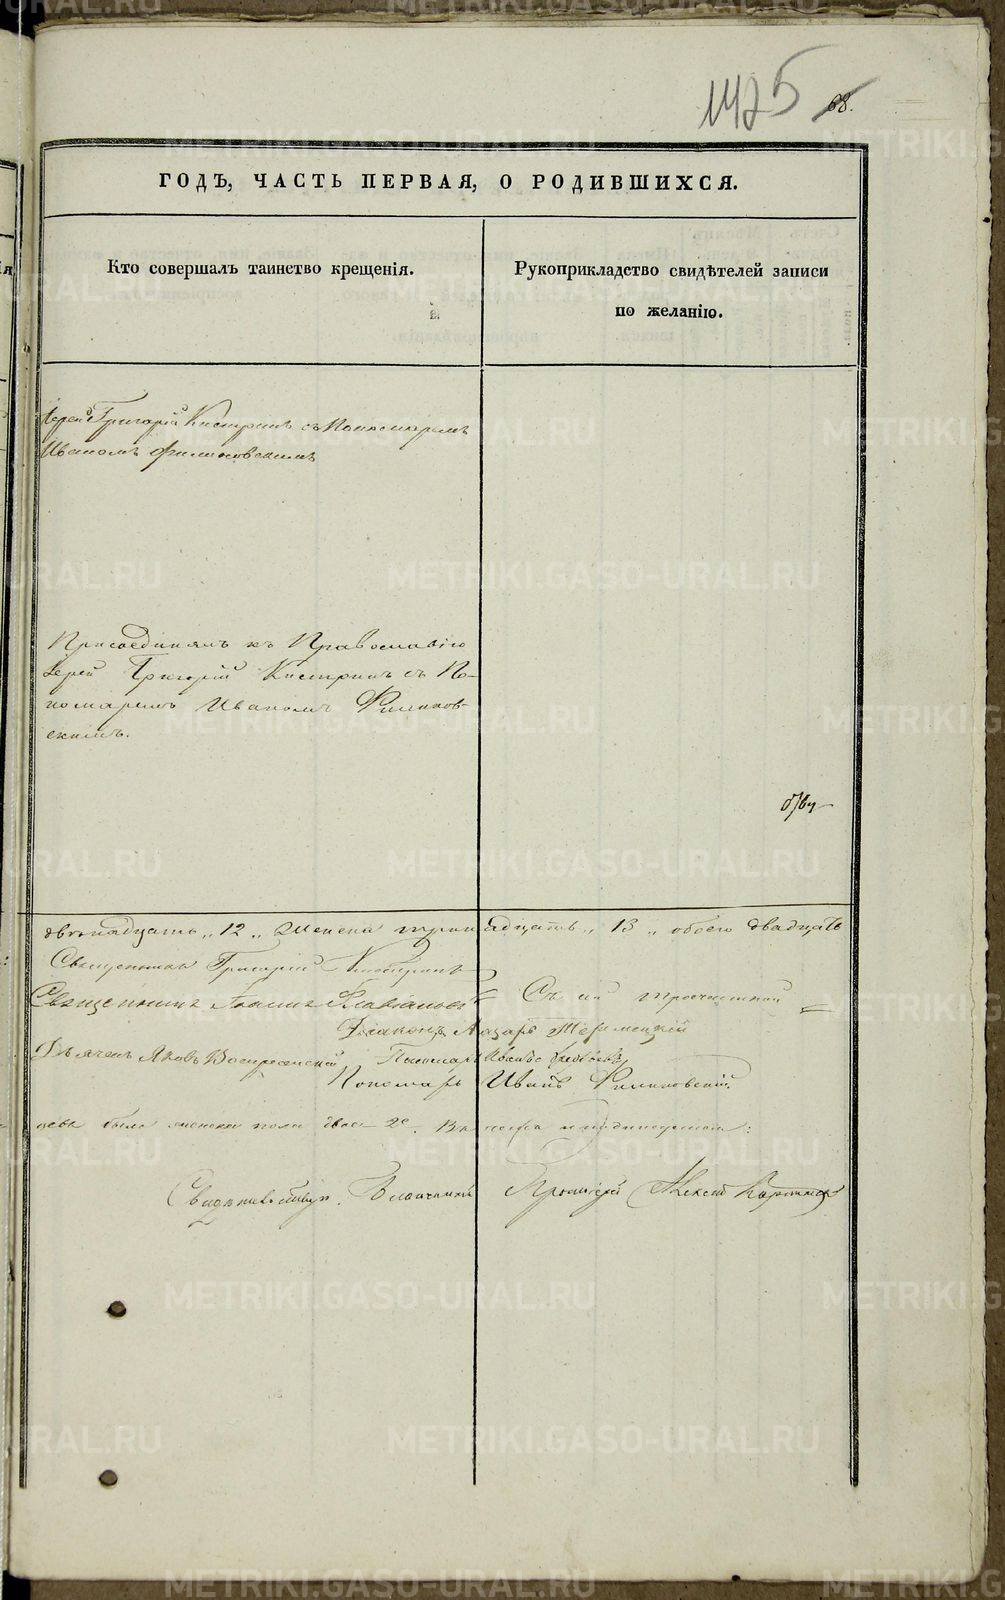 1425 68.
ГОДЪ, ЧАСТЬ ПЕРВАЯ, О РОДИВШИХСЯ.
Кто совершалъ таинство крещенія.
Рукоприкладство свидѣтелей записи
по желанію.
Іерей Григорій Кистринъ съ Пономаремъ
Иваномъ Филиповскимъ
Присоединялъ къ Православію
Іерей Григорій Кистринъ съ По-
номаремъ Иваномъ Филипов-
скимъ.
двенадцать „12„ Женска тринадцать „13„ обоего двадцать
Священникъ Григорій Кистринъ
Священникъ
Діаконъ Лазарь
Дьячекъ Яковъ Воскресенскій Пономарь
Пономарь Иванъ Филиповскій.
женска пола две 2е.
Свидѣтельствовалъ Благочинный Протоіерей Алексей
METRIKI.GASO-URAL.RU